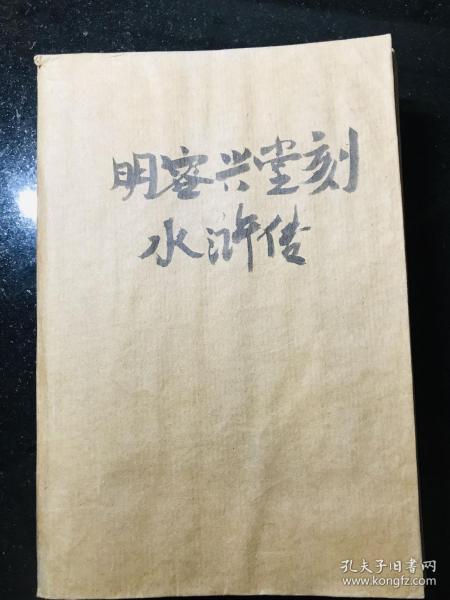 明容兴堂刻
水浒传
孔夫子旧书网
www.kongfz.com